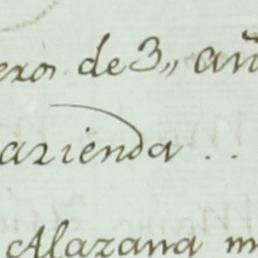 eros de 3,, añ
azienda . .
Alazana m